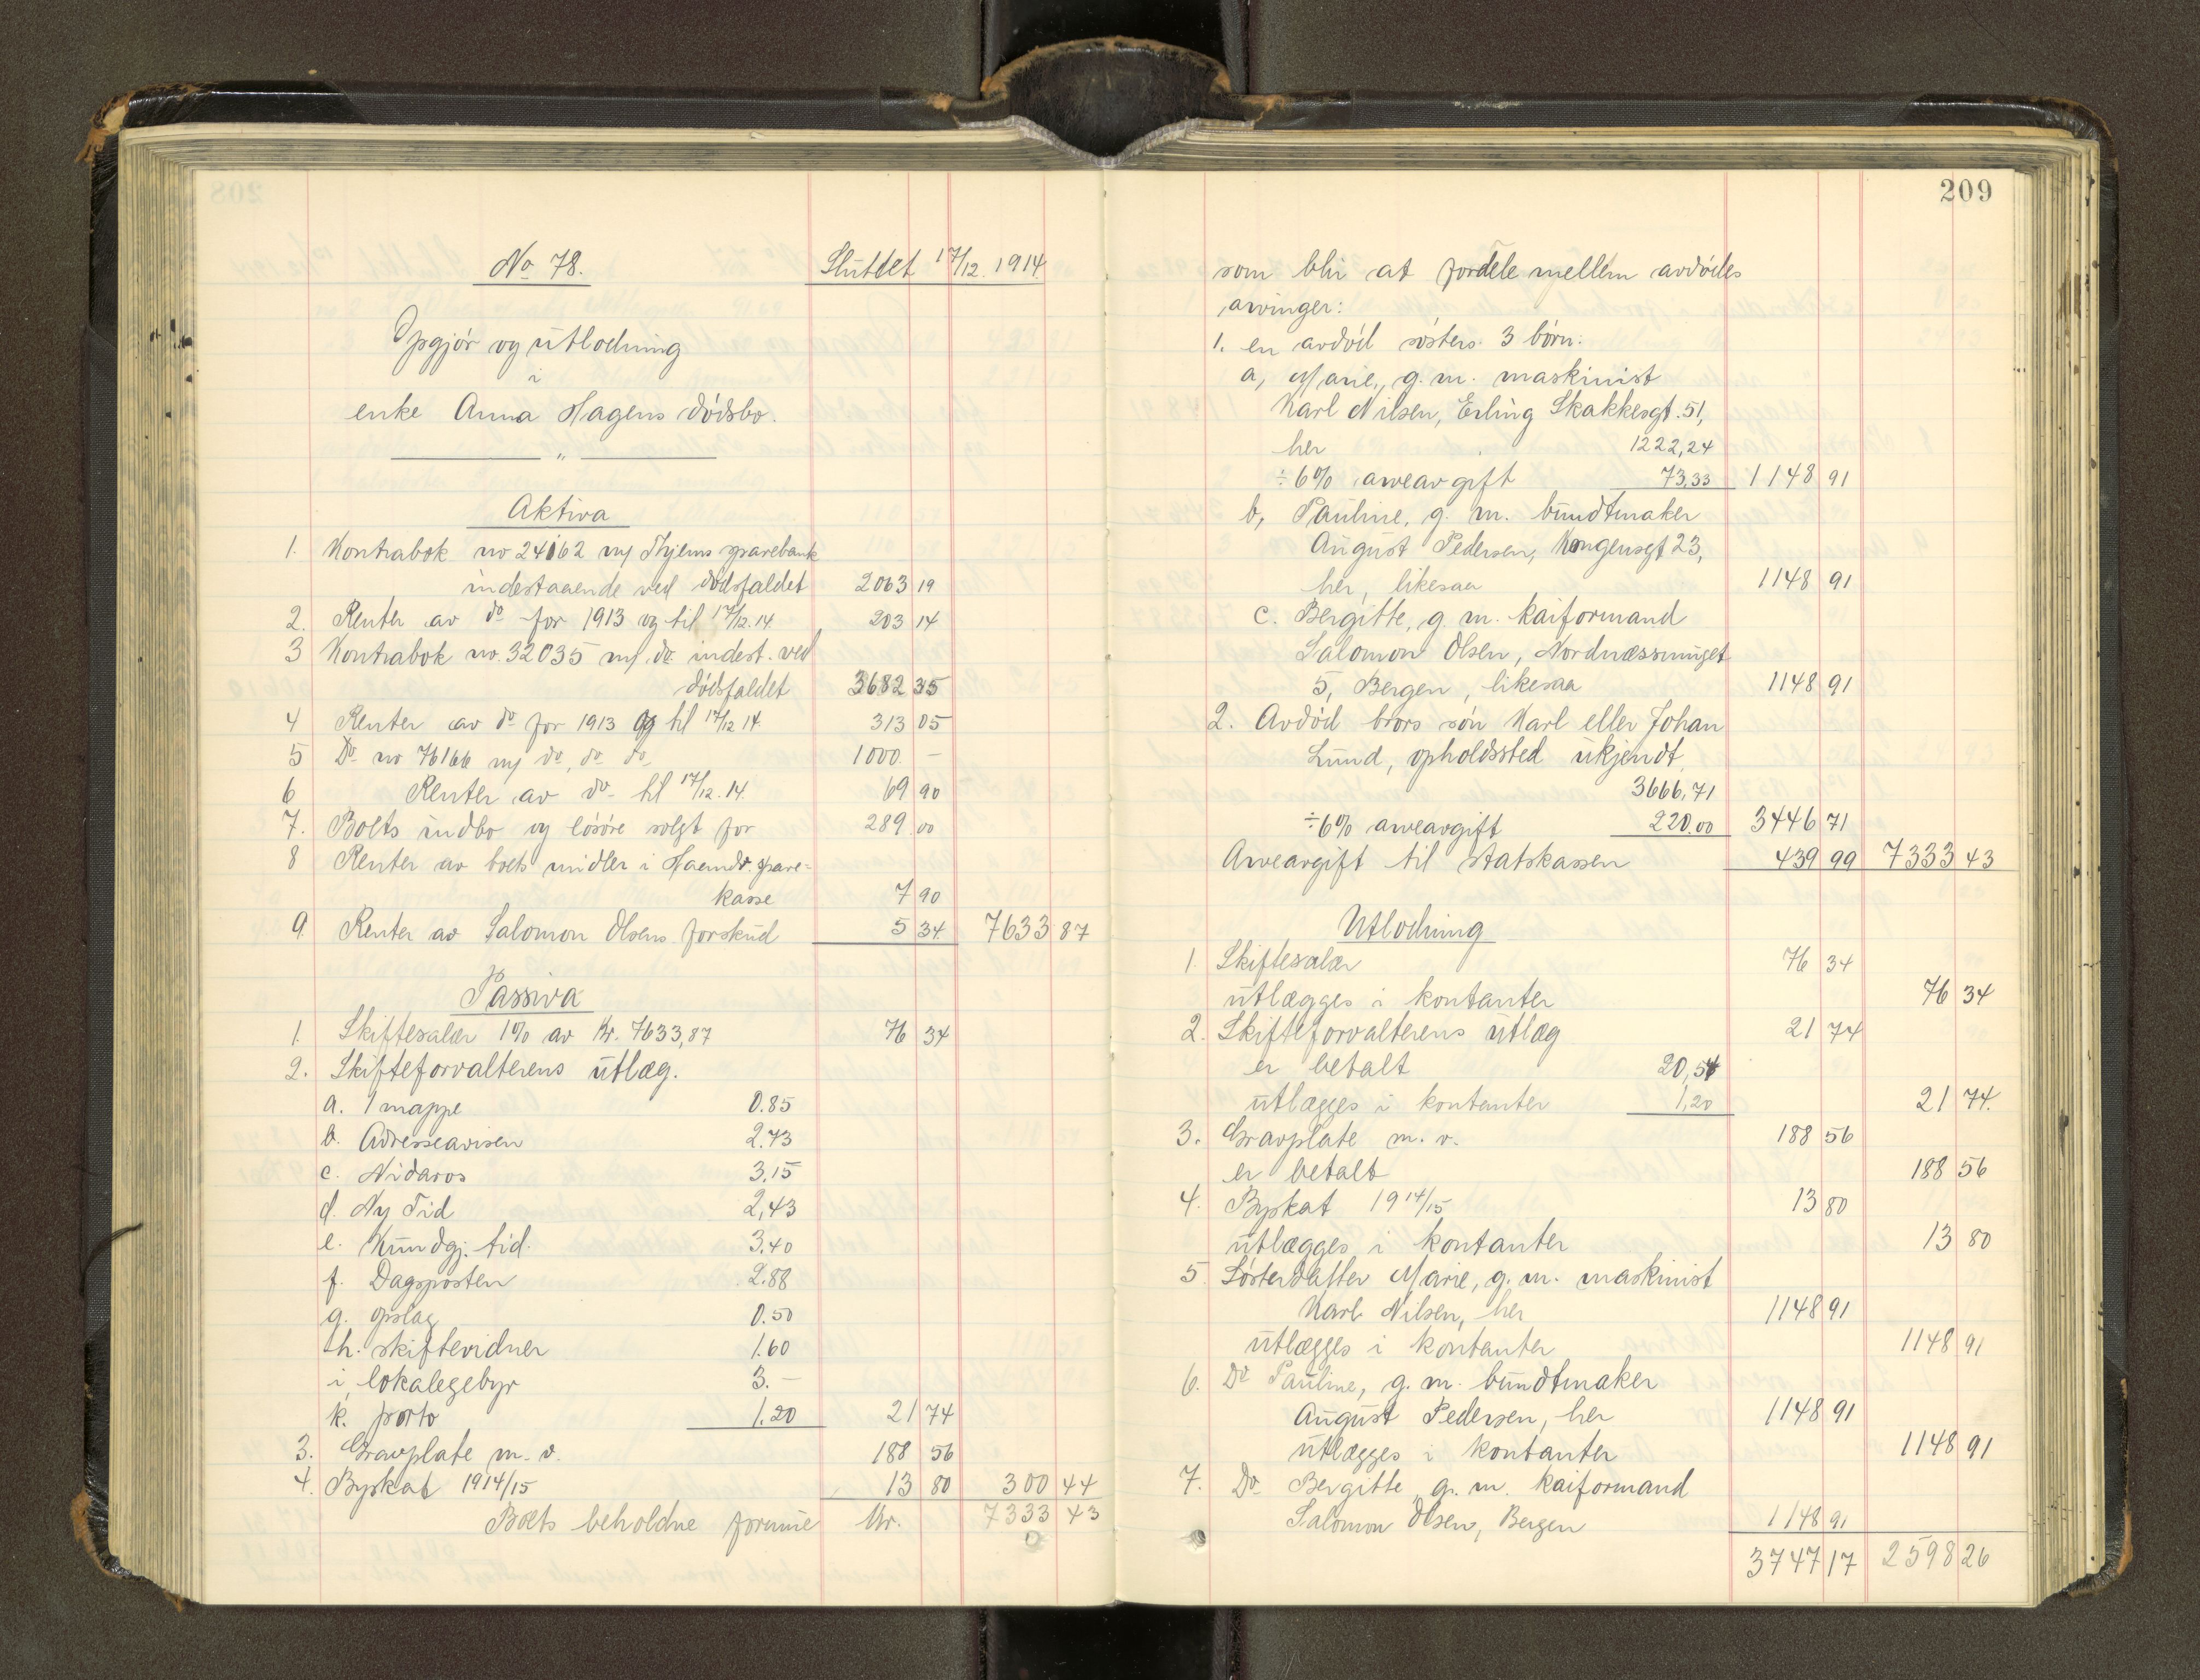 No 78. Sluttet 17/12. 1914.
Opgjør og utlodning
i
enke Anna Hagens dødsbo.
"
Aktiva
1. Kontrabok no 24162 m/ Thjems sparebank
indestaaende ved dødsfaldet 2063 19
2. Renter av do for 1913 og til 17/12.14. 203 14
3 Kontrabok no. 32035 m/ do. indest. ved
dødsfaldet 3682 35
4 Renter av do for 1913 og til 17/12 14. 313 05
5 Do no 76166 m/ do, do do 1000 –
6 Renter av do til 17/12.14. 69 90
7. Boets indbo og løsøre solgt for 289 00
8 Renter av boets midler i Haandv. spare=
kasse 7 90
9. Renter av Salomon Olsens forskud 5 34. 7633 87
Passiva
1. Skiftesalær 1% av Kr. 7633,87 76 34
2. Skifteforvalterens utlæg.
a. 1 mappe 0.85
b. Adresseavisen 2.73
c. Nidaros 3,15
d. Ny Tid 2,43
e. Kundgj. tid. 3.40
f. Dagsposten 2.88
g. opslag 0.50
h. skiftevidner 1.60
i, lokalegebyr 3.–
k. porto 1.20 21 74
3. Gravplate m. v. 188 56
4. Byskat 1914/15 13 80 300 44
Boets beholdne formue Kr. 7333 43
209
som blir at fordele mellem avdødes
arvinger:
1. en avdød søsters 3 børn:
a, Marie, g. m. maskinist
Karl Nilsen, Erling Skakkesgt. 51,
her 1222,24
÷ 6% arveavgift 73,33 1148 91
b, Pauline, g. m. bundtmaker
August Pedersen, Kongensgt 23,
her, likesaa 1148 91
c. Bergitte, g. m. kaiformand
Salomon Olsen, Nordnæssmuget
5, Bergen, likesaa 1148 91
2. Avdød brors søn Karl eller Johan
Lund, opholdssted ukjendt
3666,71
÷6% arveavgift 220.00 3446 71
Arveavgift til statskassen 439 99 7333 43
Utlodning
1. Skiftesalær 76 34
utlægges i kontanter 76 34
2. Skifteforvalterens utlæg 21 74
er betalt 20,54
utlægges i kontanter 1,20 21 74.
3. Gravplate m. v. 188 56
er betalt 188 56
4. Byskat 1914/15 13 80
utlægges i kontanter 13 80
5. Søsterdatter Marie, g. m. maskinist
Karl Nilsen, her 1148 91
utlægges i kontanter 1148 91
6. Do Pauline, g. m. bundtmaker
August Pedersen, her 1148 91
utlægges i kontanter 1148 91
7. Do Bergitte, g. m. kaiformand
Salomon Olsen, Bergen 1148 91
3747 17 2598 26